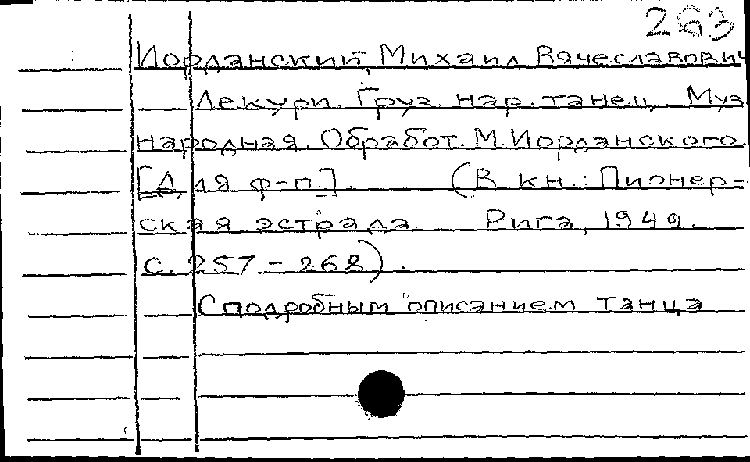 263
Иорданский, Михаил Вячеславович
Лекури. Груз. нар. танец. Муз.
народная. Обработ. М. Иорданского
[Для ф-п]. (В кн.: Пионер-
ская эстрада Рига, 1949.
с. 257 - 268).
С подробным описанием танца